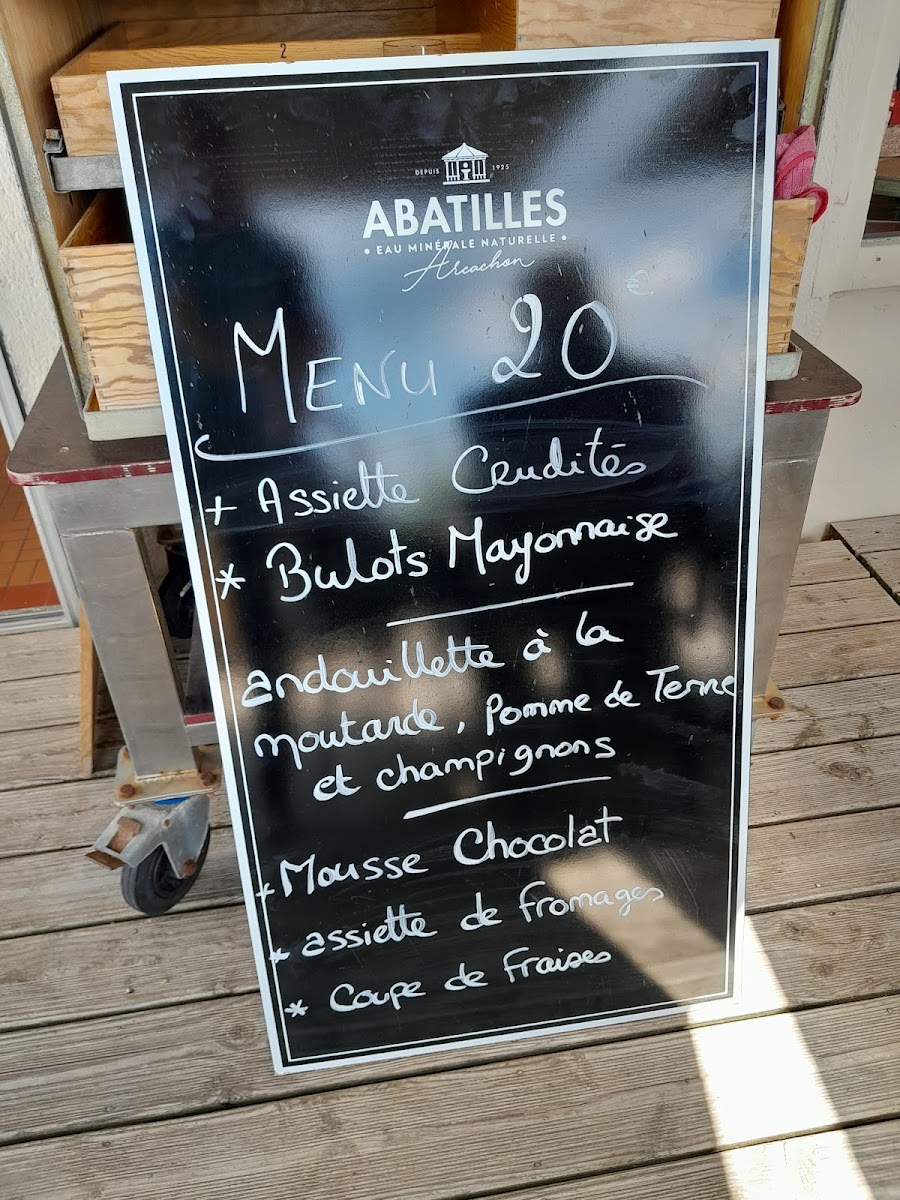 2
DEPUIS 1925
ABATILLES
• EAU MINÉRALE NATURELLE •
Arcachon
MENU 20€
+ Assiette Crudités
* Bulots Mayonnaise
andouillette à la
moutarde, pomme de Terre
et champignons
+ Mousse Chocolat
* assiette de fromages
* Coupe de fraises